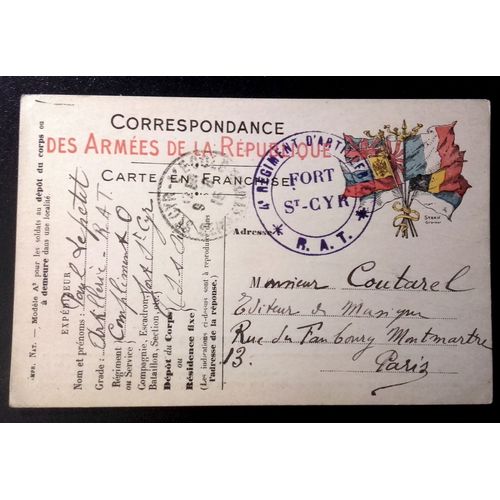 CORRESPONDANCE
DES ARMÉES DE LA RÉPUBLIQUE
CARTE EN FRANCHISE
4e RÉGIMENT D'ARTILLERIE
FORT
ST-CYR
* R. A. T. *
Adresse
Monsieur Coutarel
Editeur de Musique
Rue du Faubourg Montmartre
13.
Paris
IMPR. NAT. — Modèle A² pour les soldats au dépôt du corps ou
à demeure dans une localité.
EXPÉDITEUR
Nom et prénoms: Paul Lepetit
Grade: Artillerie - R.A.T.
Régiment
ou Service:
Compagnie, Escadron,
Bataillon, Section, etc.
Fort St Cyr
Dépôt du Corps
ou
Résidence fixe)
(Les indications ci-dessus sont à
l'adresse de la réponse.)